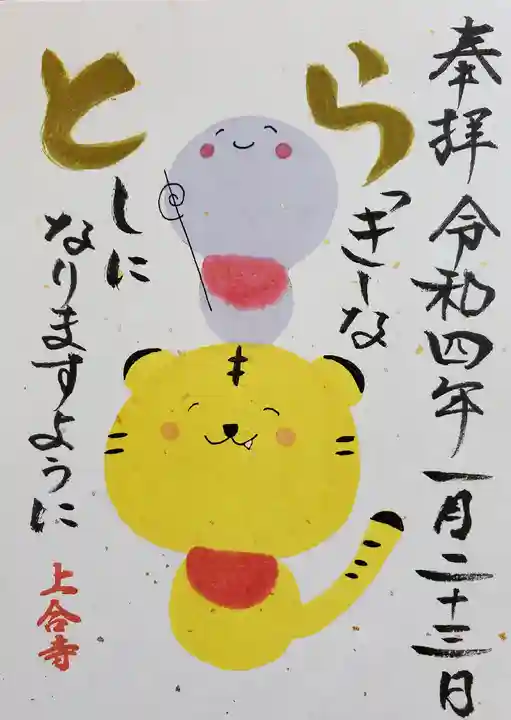 奉拝 令和四年一月二十三日
らっきーな
としに
なりますように
上合寺